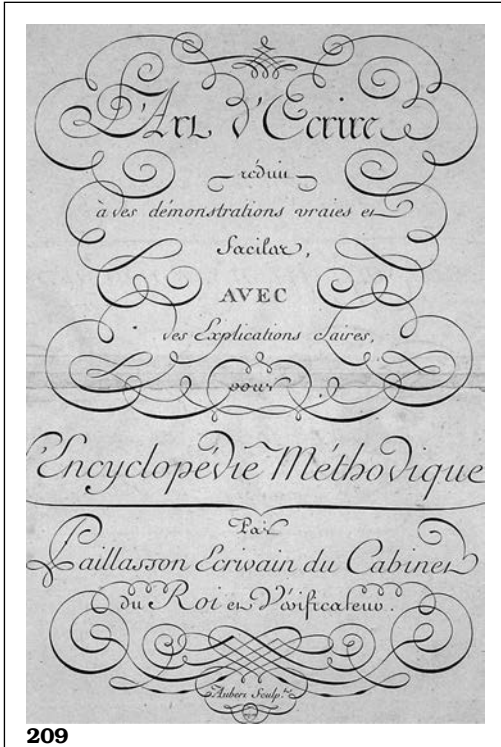 L'Art d'Ecrire
réduit
à des démonstrations vraies et
faciles,
AVEC
des Explications claires,
pour
l'Encyclopédie Méthodique
Par
Paillasson Ecrivain du Cabinet
du Roi et Vérificateur.
Aubert Sculp.
209